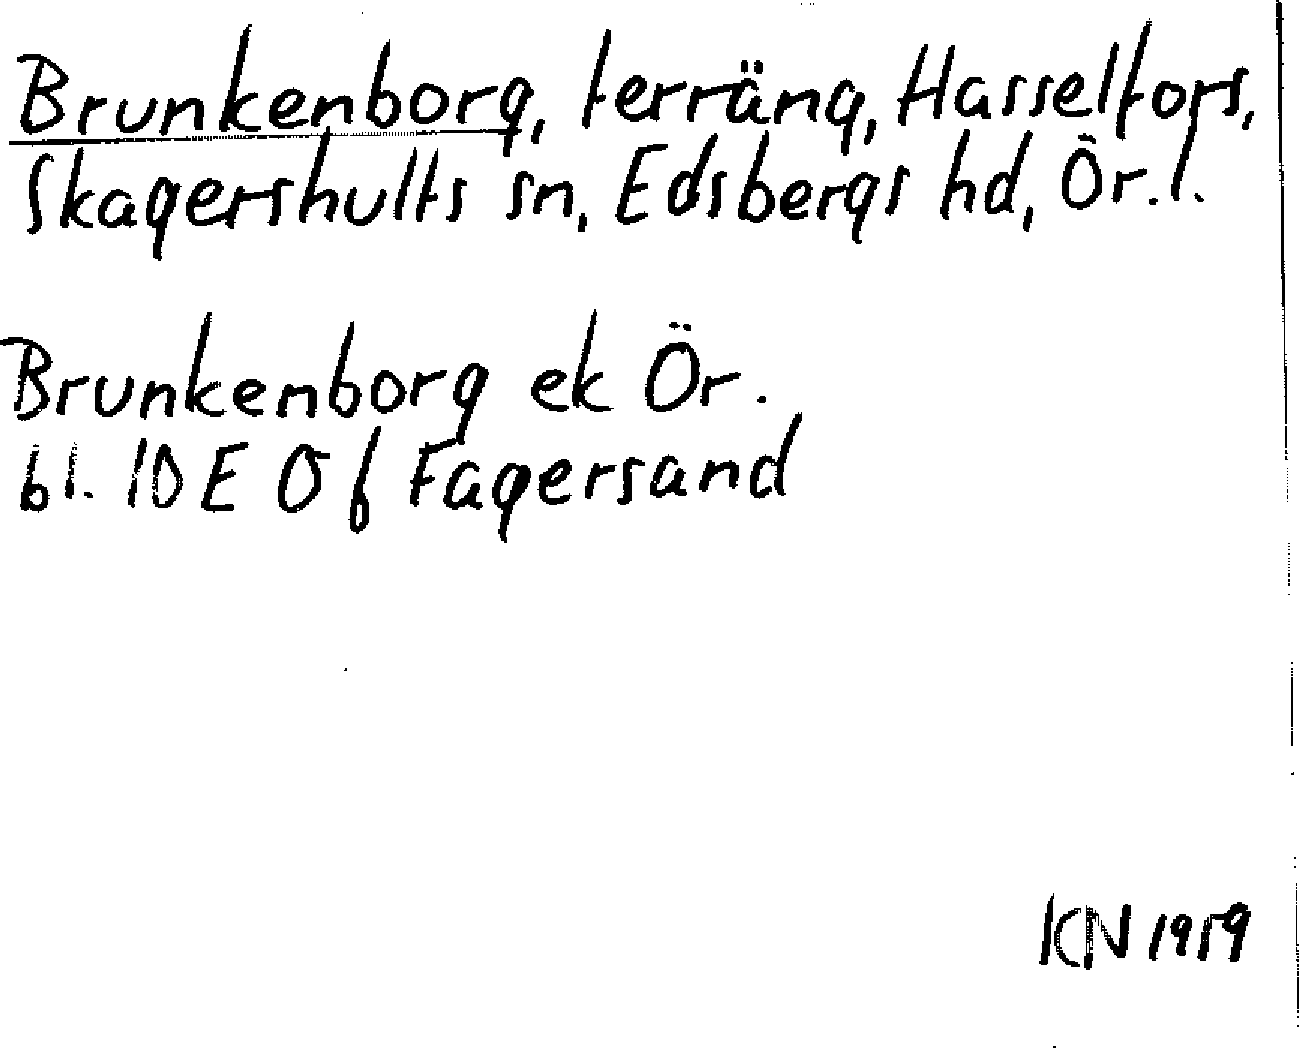 Brunkenborg, terräng, Hasselfors,
Skagershults sn, Edsbergs hd, Ör.l.
Brunkenborg ek Ör.
bl. 10E 0f Fagersand
KN 1959